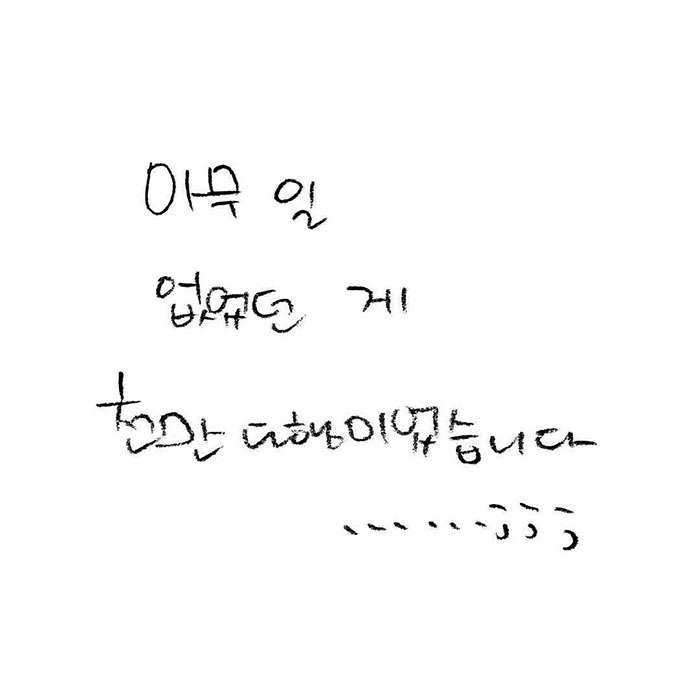 아무 일
없었던 게
천만 다행이었습니다
............;;;